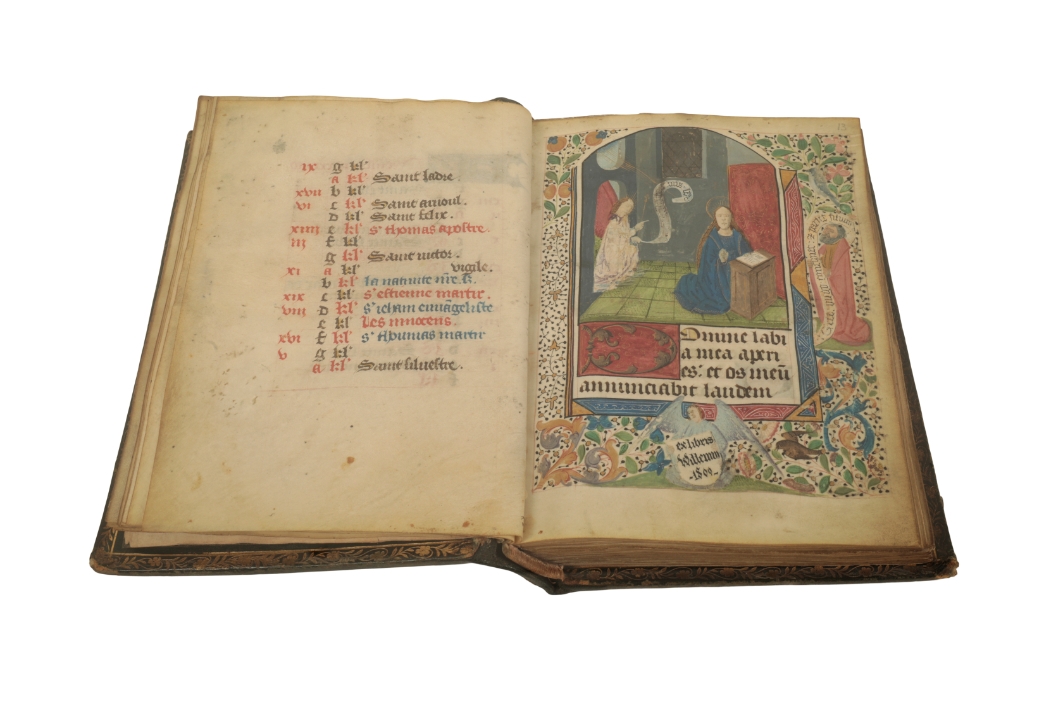 ix g kl'
a kl' Saint ladre.
xvii b kl'
vi c kl' Saint
d kl' Saint felix.
xiiii e kl' s' thomas apostre.
iii f kl'
g kl' Saint victor.
xi a kl' vigile.
b kl' la nativite nr̄e s̄.
xix c kl' s' estienne martir.
viii D kl' s' iehan euvāgeliste
e kl' Les innocens.
xvi f kl' s' thumas martir
v g kl'
a kl' Saint silvestre.
Domine labi
a mea aperi
es: et os meū
annunciabit laudem
ex libris
Willermi
1809